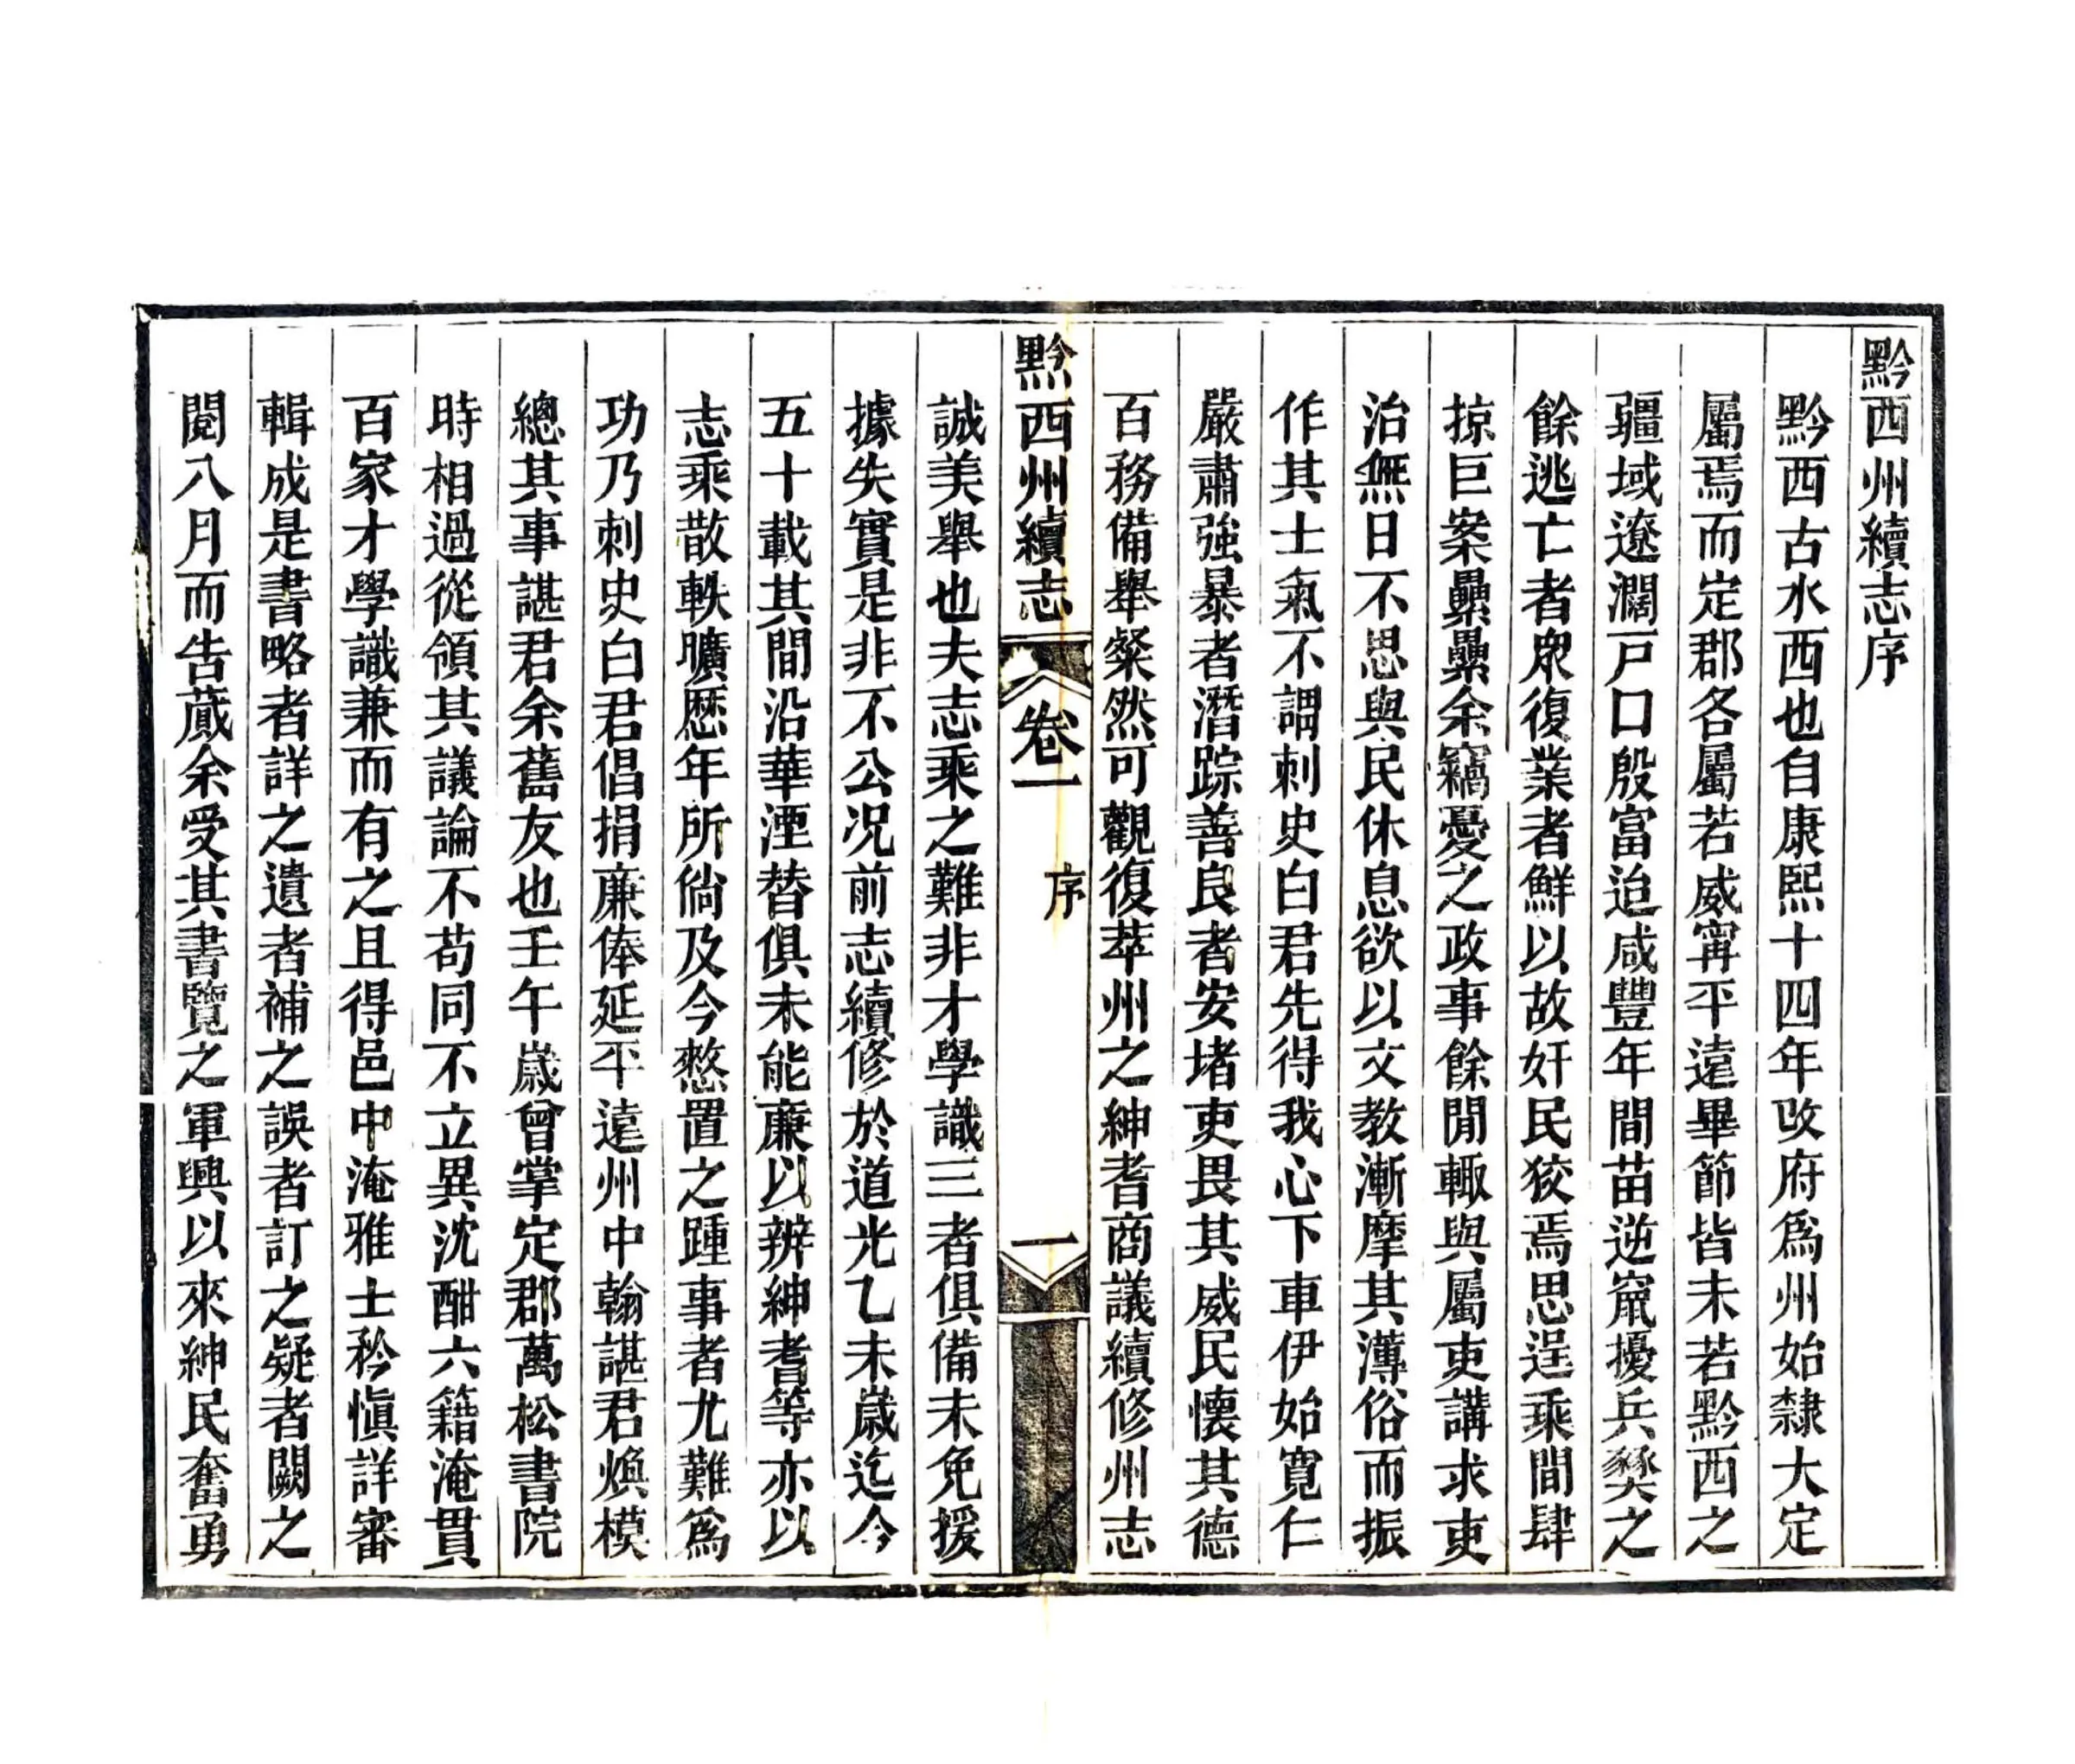 黔西州續志序
黔西古水西也自康熙十四年改府爲州始隸大定
屬焉而定郡各屬若威甯平遠畢節皆未若黔西之
疆域遼濶戸口殷富迨咸豐年間苗逆竄擾兵燹之
餘逃亡者衆復業者鮮以故奸民狡焉思逞乘間肆
掠巨案纍纍余竊憂之政事餘閒輙與屬吏講求吏
治無日不思與民休息欲以文教漸摩其薄俗而振
作其士氣不謂刺史白君先得我心下車伊始寬仁
嚴肅強暴者潛踪善良者安堵吏畏其威民懷其德
百務備舉粲然可觀復萃州之紳耆商議續修州志
黔西州續志 卷一 序 一
誠美舉也夫志乘之難非才學識三者俱備未免援
據失實是非不公况前志續修於道光乙未歲迄今
五十載其間沿革湮替俱未能廉以辨紳耆等亦以
志乘散軼曠歷年所倘及今憗置之踵事者尤難爲
功乃刺史白君倡捐廉俸延平遠州中翰諶君煥模
總其事諶君余舊友也壬午歲曾掌定郡萬松書院
時相過從領其議論不苟同不立異沈酣六籍淹貫
百家才學識兼而有之且得邑中淹雅士矜愼詳審
輯成是書略者詳之遺者補之誤者訂之疑者闕之
閱八月而告蕆余受其書覽之軍興以來紳民奮勇